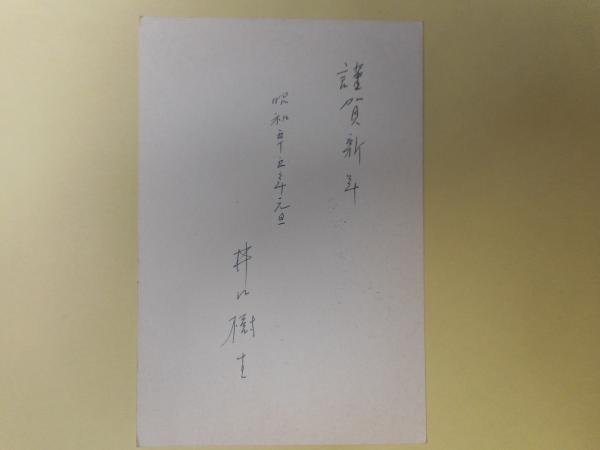 謹賀新年
昭和五十五年元旦
井口樹生